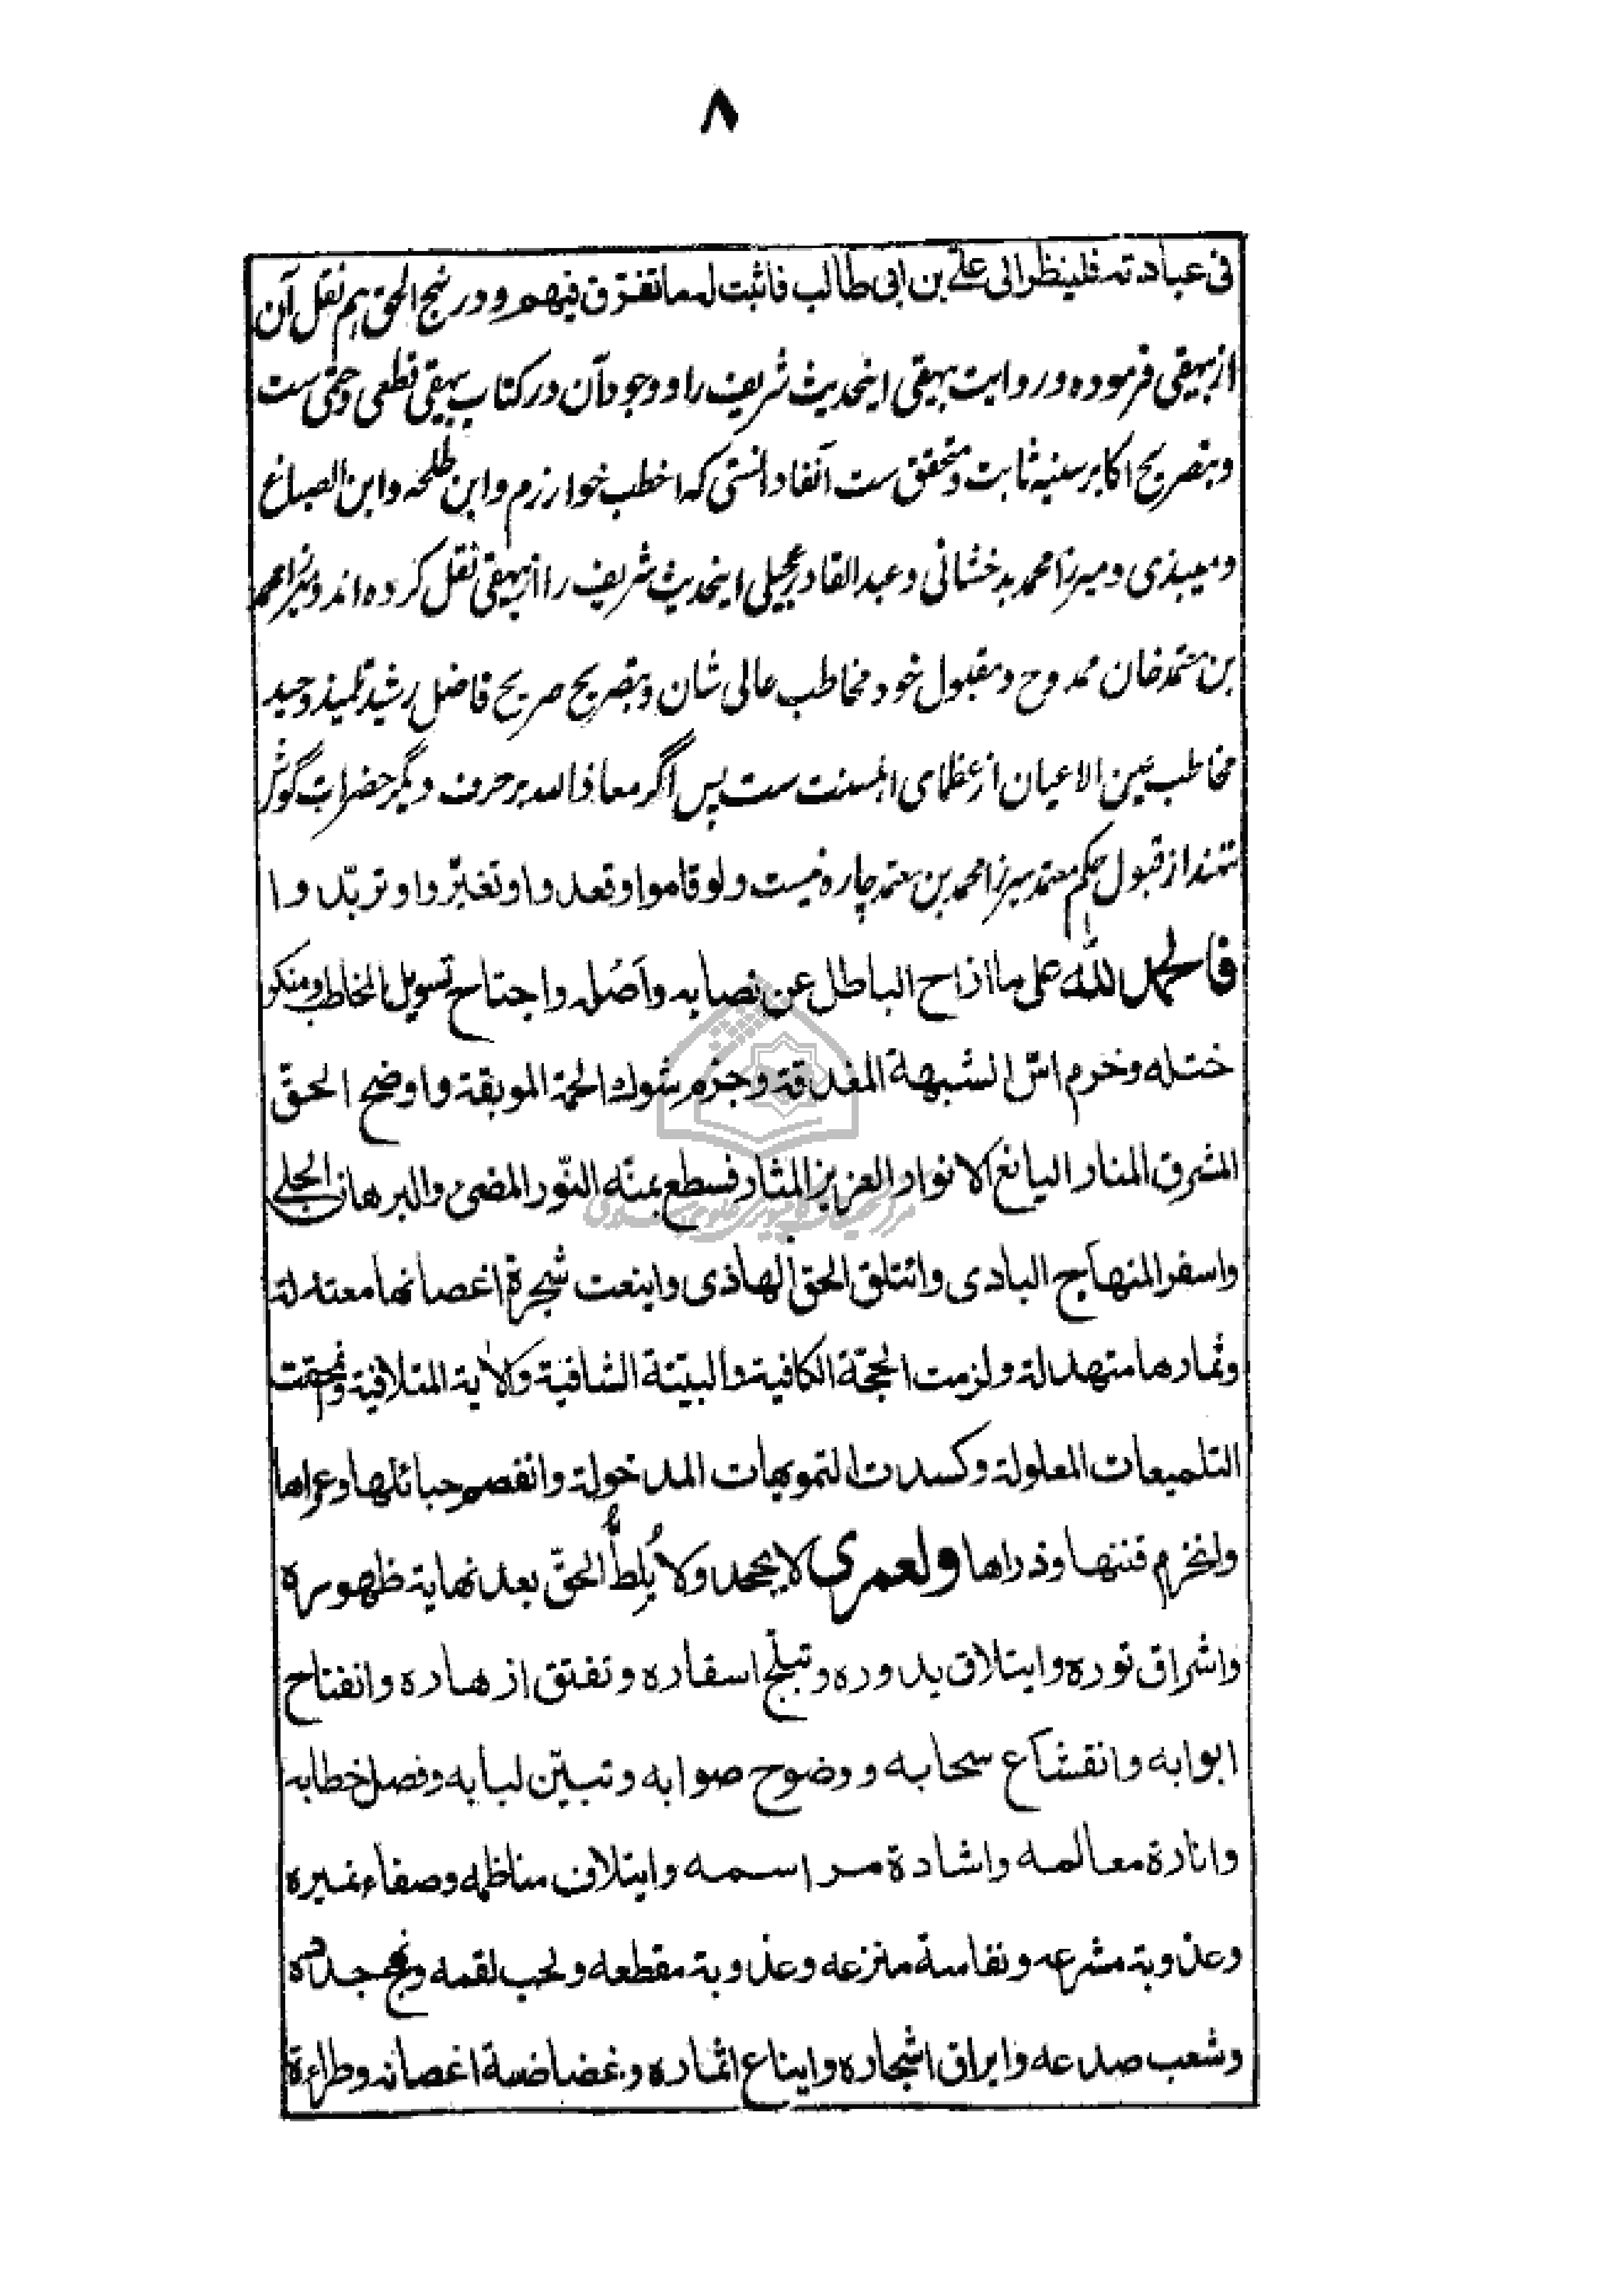 ٨
فی عبادته فلینظر الی علی بن ابی طالب فاثبت له ما تفرق فیهم و در نهج الحق هم نقل آن
از بیهقی فرموده و روایت بیهقی اینحدیث شریف را و وجود آن در کتاب بیهقی قطعی و حتمی ست
و بتصریح اکابر سنیه ثابت و متحقق ست آنفا دانستی که اخطب خوارزم و ابن طلحه و ابن الصباغ
و میبذی و میرزا محمد بدخشانی و عبد القادر عجیلی اینحدیث شریف را از بیهقی نقل کرده اند و میرزا محمد
بن معتمد خان ممدوح و مقبول خود مخاطب عالی شان و بتصریح صریح فاضل رشید تلمیذ وحید
مخاطب عین الاعیان از عظمای اهلسنت ست پس اگر معاذ الله بر حرف دیگر حضرات گوش
ننهند از قبول حکم معتمد میرزا محمد بن معتمد چاره نیست و لو قاموا و قعدوا و تغیّروا و تربّدوا
فالحمد لله علی ما ازاح الباطل عن نصابه و اَصُله و اجتاح تسویل المخاطب و منکر
ختله و خرم اسّ الشبهة المغدقة و جزم شوك الحمة الموبقة و اوضح الحقّ
المشرق المنار الیانع الانوار العزیز المثار فسطع بمنّه النّور المضیٔ و البرهان الجلی
و اسفر المنهاج البادی و ائتلق الحق الهاذی و اینعت شجرة اغصانها معتدلة
و ثمارها متهدلة و لزمت الحجّة الکافیة و البیّنة الشافیة و الایة المتلافیة و محقت
التلمیعات المعلولة و کسدت التمویهات المدخولة و انفصم حبائلها و عراها
و انخرم قننها و ذراها و لعمری لا یجحد و لا یُلِطُّ الحقّ بعد نهایة ظهوره
و اشراق نوره و ایتلاق بدوره و تبلّج اسفاره و تفتق ازهاره و انفتاح
ابوابه و انقشاع سحابه و وضوح صوابه و تبیّن لبابه و فصل خطابه
و انارة معالمه و اشادة مراسمه و ایتلاف مناظمه و صفاء نمیره
و عذوبة مشرعه و نفاسة منزعه و عذوبة مقطعه و لحب لقمه و نهج جدده
و شعب صدعه و ایراق اشجاره و ایناع اثماره و غضاضة اغصانه و طراءة